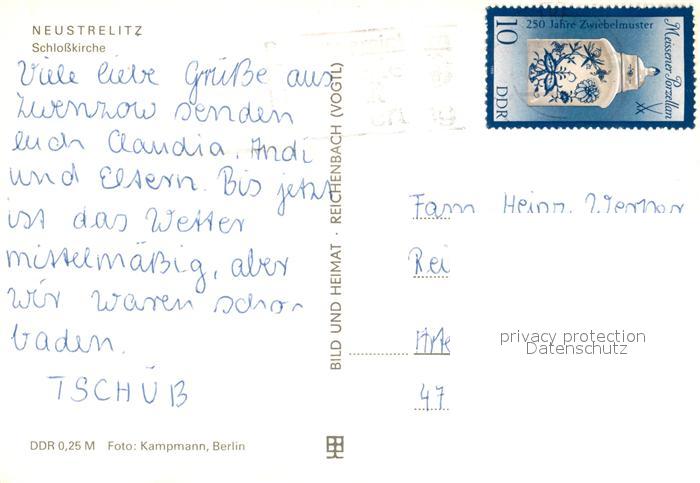 NEUSTRELITZ
Schloßkirche
Viele liebe Grüße aus
Zwenzow senden
euch Claudia, Andi
und Eltern. Bis jetzt
ist das Wetter
mittelmäßig, aber
wir waren schon
baden.
TSCHÜß
DDR 0,25 M Foto: Kampmann, Berlin
BILD UND HEIMAT · REICHENBACH (VOGTL)
250 Jahre Zwiebelmuster
Meissener Porzellan
10
DDR
Fam Heinz Werner
Rei
47
privacy protection
Datenschutz